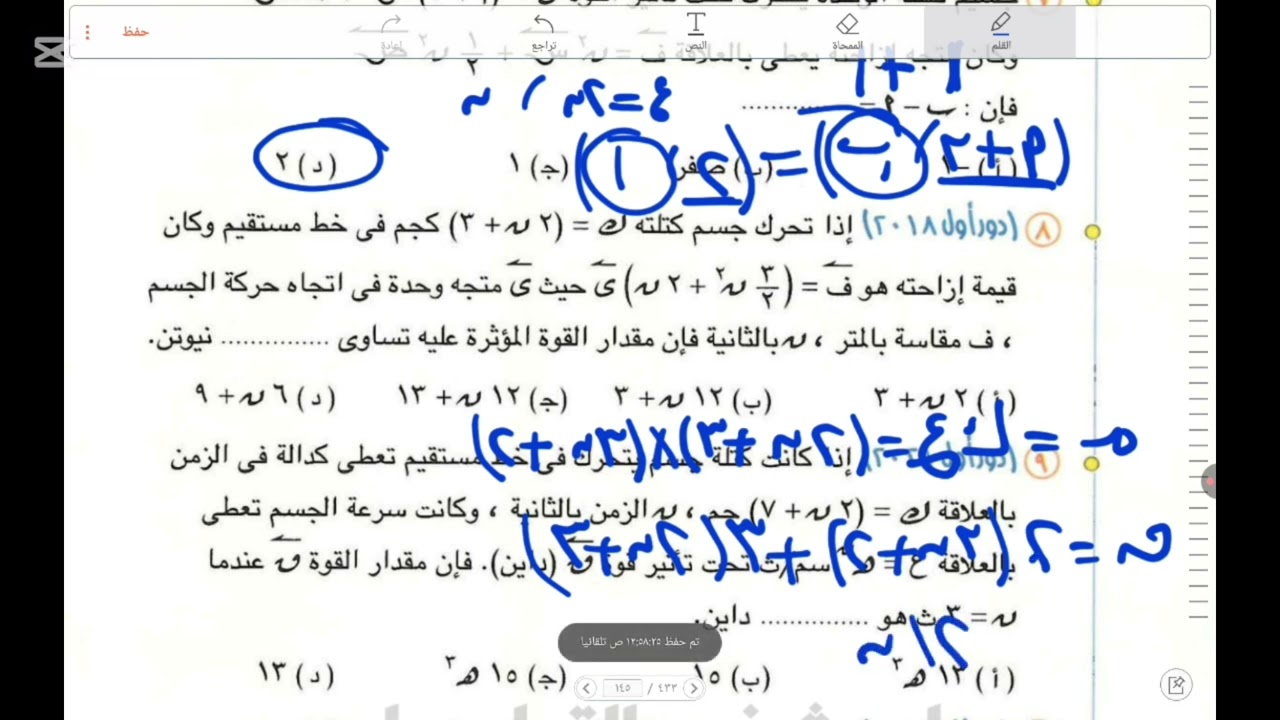 حفظ
إعادة
تراجع
النص
الممحاة
القلم
وكان متجه إزاحته يعطى بالعلاقة ف = ن٢ س + ١/٢ ن٢ ص
فإن : ب - م = ............
٤ = ٢ن ، ن
(أ) -١ (ب) صفر (ج) ١ (د) ٢
(م + ٢) (ب) = (٢) (١)
٨ (دور أول ٢٠١٨) إذا تحرك جسم كتلته ك = (٢ ن + ٣) كجم فى خط مستقيم وكان
قيمة إزاحته هو ف = (٣/٢ ن٢ + ٢ ن) ى حيث ى متجه وحدة فى اتجاه حركة الجسم
، ف مقاسة بالمتر ، ن بالثانية فإن مقدار القوة المؤثرة عليه تساوى ............... نيوتن.
(أ) ٢ ن + ٣ (ب) ١٢ ن + ٣ (ج) ١٢ ن + ١٣ (د) ٦ ن + ٩
= ك ع = (٢ن + ٣) × (٣ن + ٢)
٩ إذا كانت كتلة جسم يتحرك فى خط مستقيم تعطى كدالة فى الزمن
بالعلاقة ك = (٢ ن + ٧) جم ، ن الزمن بالثانية ، وكانت سرعة الجسم تعطى
ق = ٢ (٣ن + ٢) + ٣ (٢ن + ٣)
بالعلاقة ع = سم/ث تحت تأثير قوة ق (داين). فإن مقدار القوة ق عندما
ن = ٣ ث هو ............... داين.
١٢ ن
تم حفظ ١٢:٥٨:٢٥ ص تلقائيا
(أ) ١٣ هـ٣ (ب) ١٥ (ج) ١٥ هـ٣ (د) ١٣
١٤٥ / ٤٣٣